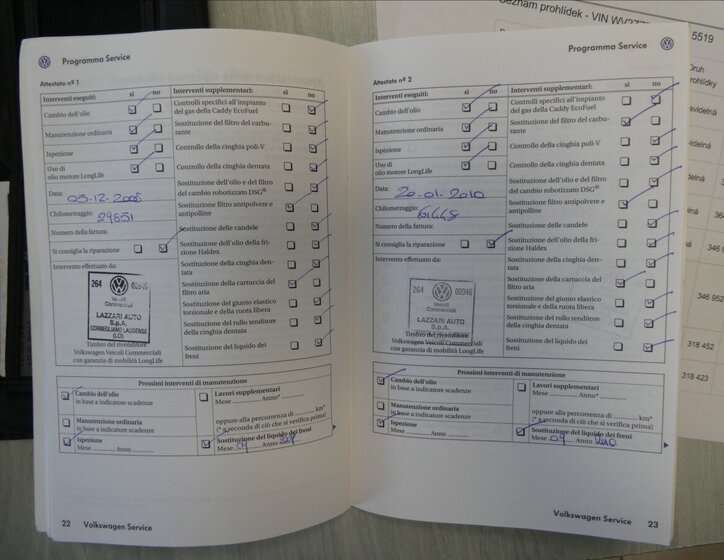 Seznam prohlídek - VIN WV2
5519
Druh
prohlídky
346 952
318 452
318 423
Programma Service
Attestato nº 1
Interventi eseguiti: sì no
Cambio dell'olio
Manutenzione ordinaria
Ispezione
Uso di
olio motore LongLife
Data:
Chilometraggio: 29851
Numero della fattura:
Si consiglia la riparazione
Intervento effettuato da:
264 00946
Veicoli
Commerciali
LAZZARI AUTO
S.p.A.
CORNEGLIANO LAUDENSE
(LO)
Timbro del rivenditore
Volkswagen Veicoli Commerciali
con garanzia di mobilità LongLife
Interventi supplementari: sì no
Controlli specifici all'impianto
del gas della Caddy EcoFuel
Sostituzione del filtro del carbu-
rante
Controllo della cinghia poli-V
Controllo della cinghia dentata
Sostituzione dell'olio e del filtro
del cambio robotizzato DSG®
Sostituzione filtro antipolvere e
antipolline
Sostituzione delle candele
Sostituzione dell'olio della fri-
zione Haldex
Sostituzione della cinghia den-
tata
Sostituzione della cartuccia del
filtro aria
Sostituzione del giunto elastico
torsionale e della ruota libera
Sostituzione del rullo tenditore
della cinghia dentata
Sostituzione del liquido dei
freni
Prossimi interventi di manutenzione
Cambio dell'olio
in base a indicatore scadenze
Manutenzione ordinaria
in base a indicatore scadenze
Ispezione
Mese ........ Anno ........
Lavori supplementari
Mese ........ Anno* ........
oppure alla percorrenza di ........ km*
(* a seconda di ciò che si verifica prima)
Sostituzione del liquido dei freni
Mese 09 Anno
22 Volkswagen Service
Programma Service
Attestato nº 2
Interventi eseguiti: sì no
Cambio dell'olio
Manutenzione ordinaria
Ispezione
Uso di
olio motore LongLife
Data: 20.01.2010
Chilometraggio:
Numero della fattura:
Si consiglia la riparazione
Intervento effettuato da:
264 00946
Veicoli
Commerciali
LAZZARI AUTO
S.p.A.
Timbro del rivenditore
Volkswagen Veicoli Commerciali
con garanzia di mobilità LongLife
Interventi supplementari: sì no
Controlli specifici all'impianto
del gas della Caddy EcoFuel
Sostituzione del filtro del carbu-
rante
Controllo della cinghia poli-V
Controllo della cinghia dentata
Sostituzione dell'olio e del filtro
del cambio robotizzato DSG®
Sostituzione filtro antipolvere e
antipolline
Sostituzione delle candele
Sostituzione dell'olio della fri-
zione Haldex
Sostituzione della cinghia den-
tata
Sostituzione della cartuccia del
filtro aria
Sostituzione del giunto elastico
torsionale e della ruota libera
Sostituzione del rullo tenditore
della cinghia dentata
Sostituzione del liquido dei
freni
Prossimi interventi di manutenzione
Cambio dell'olio
in base a indicatore scadenze
Manutenzione ordinaria
in base a indicatore scadenze
Ispezione
Mese ........ Anno ........
Lavori supplementari
Mese ........ Anno* ........
oppure alla percorrenza di ........ km*
(* a seconda di ciò che si verifica prima)
Sostituzione del liquido dei freni
Mese 09 Anno
Volkswagen Service 23